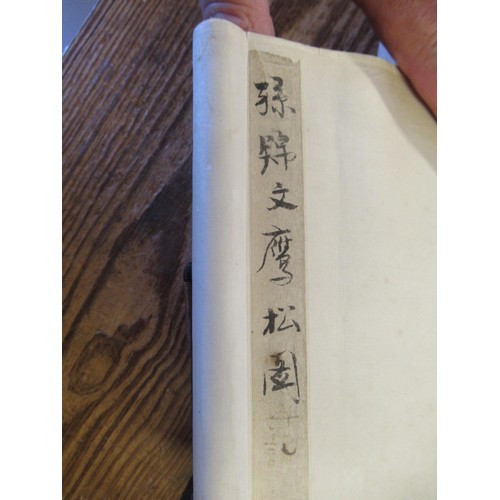 孫錦文鷹松圖